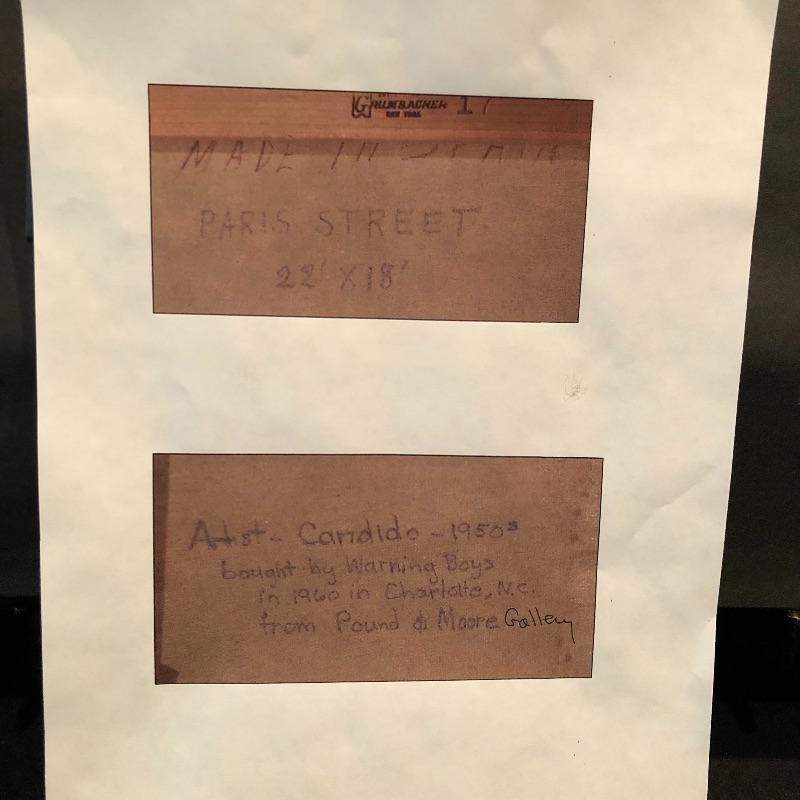 GRUMBACHER 1
NEW YORK
MADE IN
PARIS STREET
22' X 18'
Artist - Candido - 1950s
bought by Warning Boys
in 1960 in Charlotte, N.C.
from Pound & Moore Gallery